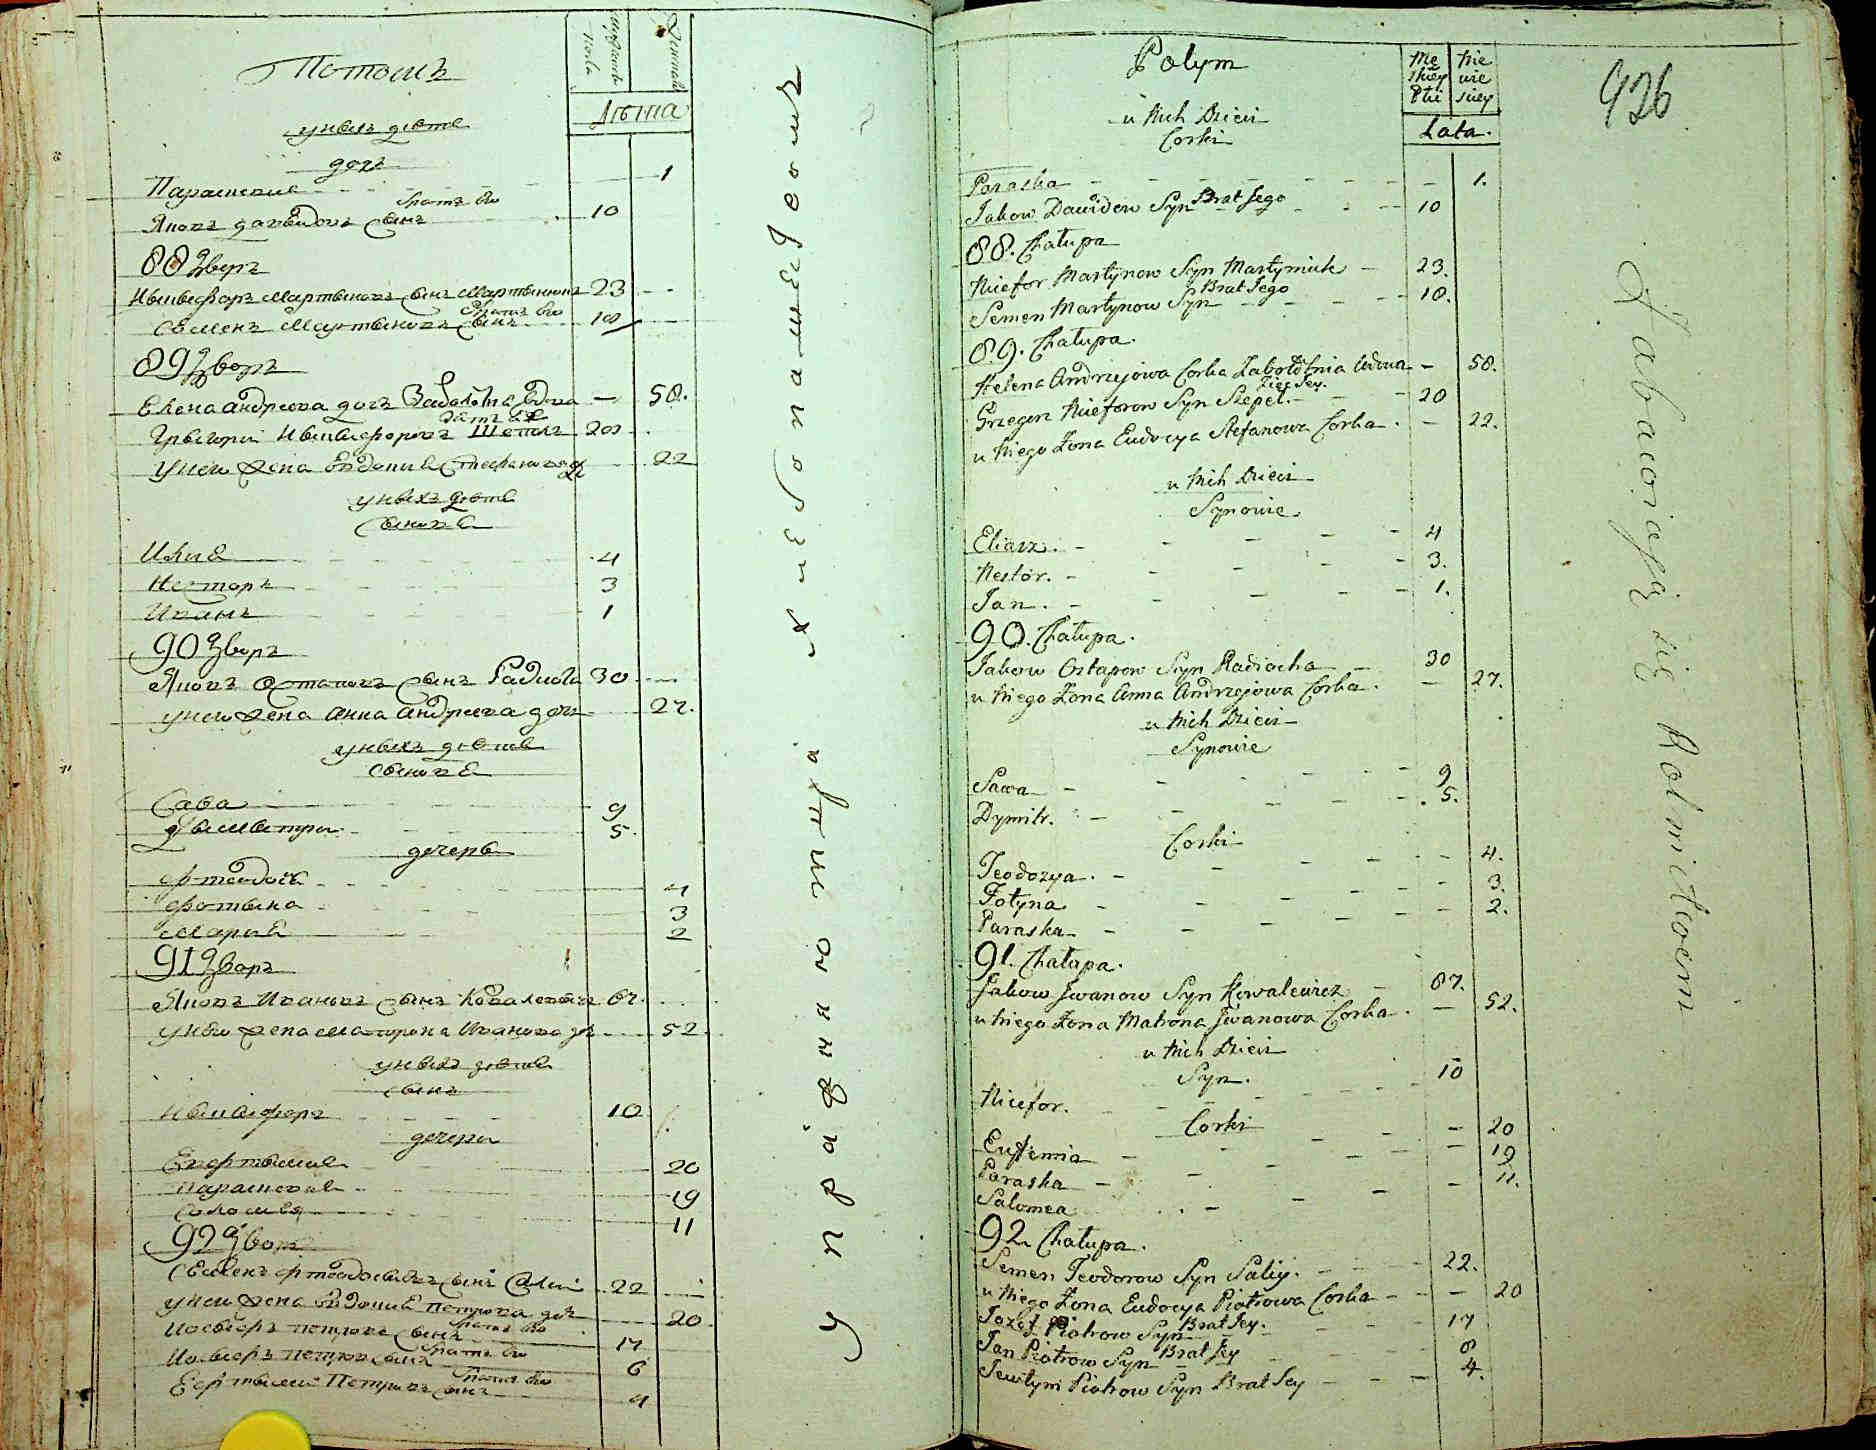 Потомъ
Мужеска
пола
Женска
Лѣта
у нихъ дѣте
дочь
Параскевие 1
братъ его
Яковъ давидовъ сынъ 10
88 Дворъ
Никифоръ Мартыновъ сынъ Мартынюкъ 23
братъ его
Семенъ Мартыновъ сынъ 10
89 Дворъ
Елена андреева дочь Заболотна вдова 50.
зять ее
Григории Никифоровъ Шепель 20
у него жена Евдокия Стефанова дочь 22
у нихъ дѣте
сынове
Илие 4
Несторъ 3
Иванъ 1
90 Дворъ
Яковъ Остаповъ сынъ Радиоха 30
у него жена анна андреева дочь 27.
у нихъ дѣте
сынове
Сава 9
Дымитри 5.
дочери
Феодосия 4
Фотына 3
Марие 2
91 Дворъ
Яковъ Ивановъ сынъ Ковалевичъ 67.
у него жена Матрона Иванова дочь 52
у нихъ дѣте
сынъ
Никифоръ 10
дочери
Евфтимие 20
Параскевие 19
Соломея 11
92 Дворъ
Семенъ Феодоровъ сынъ Салий 22
у него жена Евдокие петрова дочь 20
братъ ее
Иосифъ петровъ сынъ 17
братъ ее
петровъ сынъ 6
братъ ее
Евфтыми Петровъ сынъ 4
упрáжняютца хлебопашеством
Potym
Mę
skiey
Płci
Nie
wie
skiey
Lata.
426
u Nich Dzieci
Corki
Paraska 1.
Brat Jego
Jakow Dawidow Syn 10
88. Chałupa
Nicefor Martynow Syn Martyniuk 23.
Brat Jego
Semen Martynow Syn 10.
89. Chałupa.
Helena Andrzejowa Corka Zabołotnia Wdowa 50.
Zięc Jey.
Grzegorz Niceforow Syn Szepel. 20
u Niego Zona Eudocya Stefanowa Corka. 22.
u Nich Dzieci
Synowie.
Eliasz. 4
Nestor. 3.
Jan. 1.
90. Chałupa.
Jakow Ostapow Syn Radiocha 30
u Niego Zona Anna Andrzejowa Corka. 27.
u Nich Dzieci
Synowie
Sawa 9
Dymitr. 5.
Corki
Teodozya. 4.
Fotyna 3.
Paraska 2.
91. Chałupa.
Jakow Jwanow Syn Kowalewicz 67.
u Niego Zona Matrona Jwanowa Corka. 52.
u Nich Dzieci
Syn. 10
Nicefor.
Corki
Euftemia 20
Paraska 19
Salomea 11.
92. Chałupa.
Semen Teodorow Syn Saliy. 22.
u Niego Zona Eudocya Piotrowa Corka 20
Brat Jey.
Jozef Piotrow Syn 17
Brat Jey
Jan Piotrow Syn 6
Jewtym Piotrow Syn Brat Jey 4.
Zabawiają się Rolnictwem